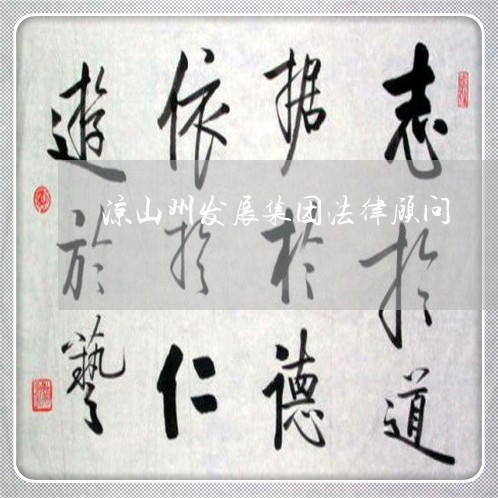 志於道
据於德
依於仁
遊於藝
凉山州发展集团法律顾问